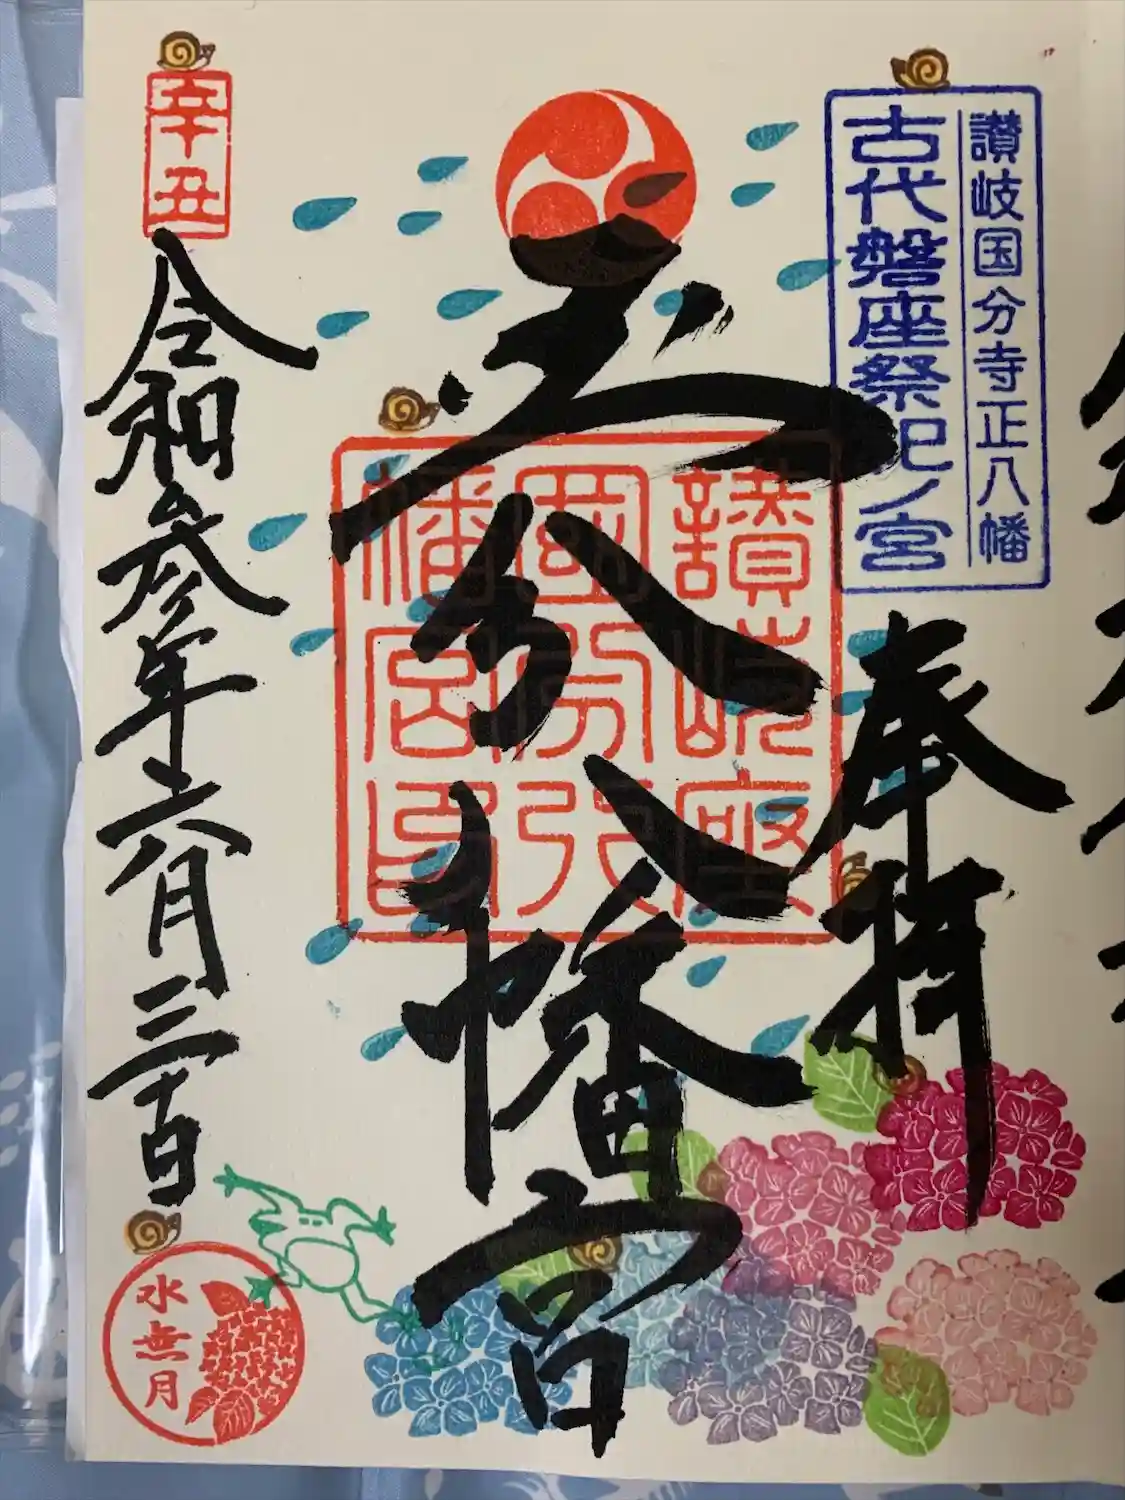 讃岐国分寺正八幡
古代磐座祭祀ノ宮
奉拝
国分八幡宮
讃岐
國分八
幡宮印
辛丑
令和参年六月三十日
水無月